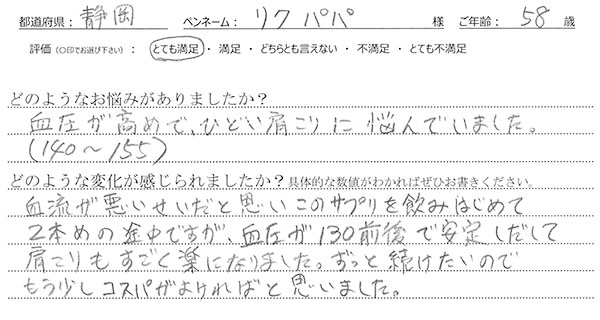 都道府県： 静岡 ペンネーム： リクパパ 様 ご年齢： 58 歳
評価（○印でお選び下さい）： とても満足 ・ 満足 ・ どちらとも言えない ・ 不満足 ・ とても不満足
どのようなお悩みがありましたか？
血圧が高めで、ひどい肩こりに悩んでいました。
（140～155）
どのような変化が感じられましたか？具体的な数値がわかればぜひお書きください。
血流が悪いせいだと思いこのサプリを飲みはじめて
2本めの途中ですが、血圧が130前後で安定しだして
肩こりもすごく楽になりました。ずっと続けたいので
もう少しコスパがよければと思いました。